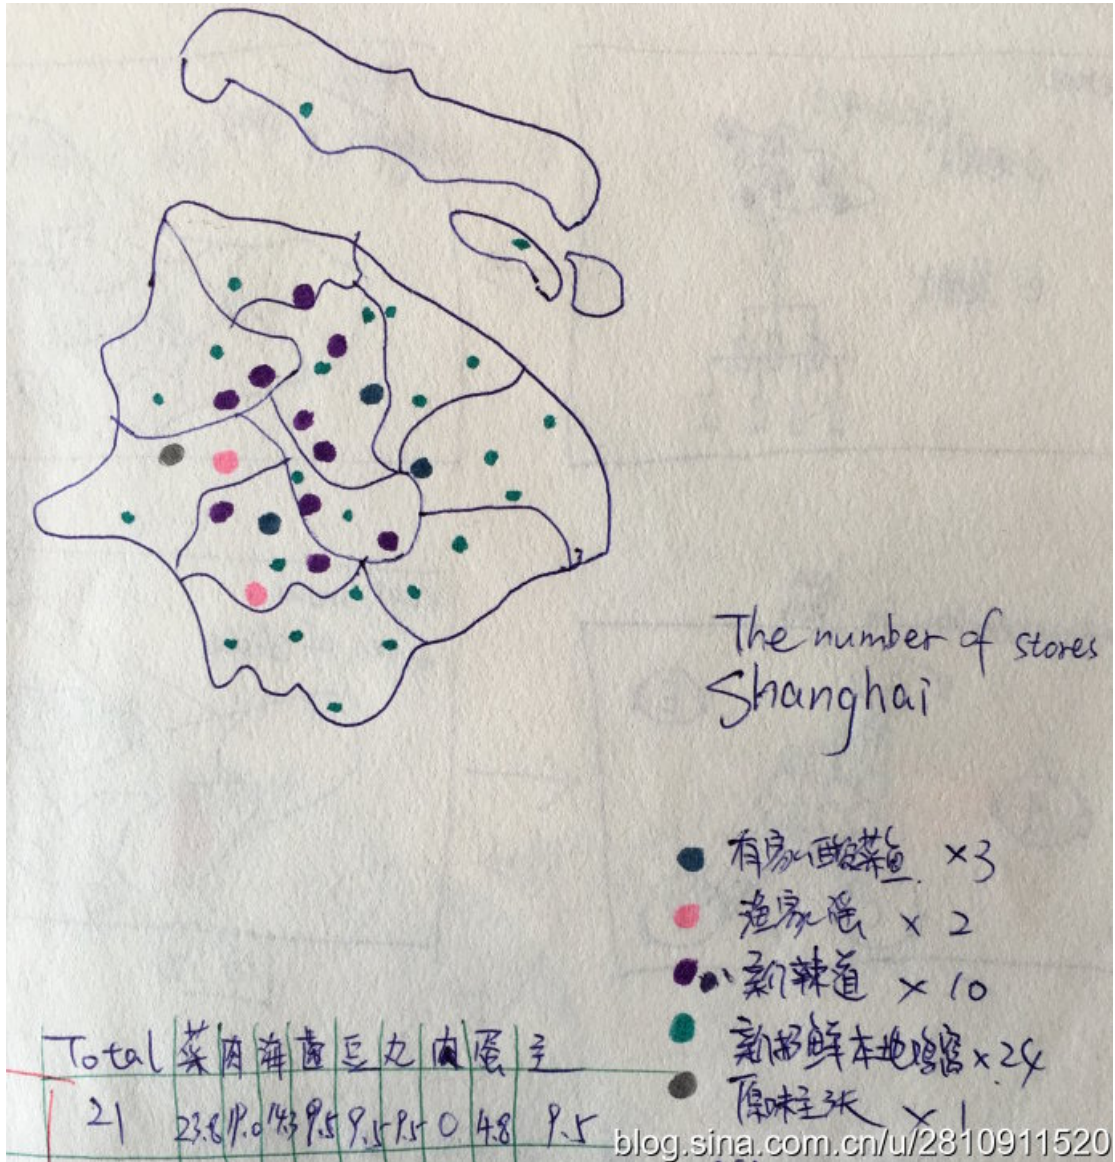 The number of stores
Shanghai
有家酸菜鱼 ×3
渔家 × 2
新辣道 × 10
鲜本地 ×24
原味主张 ×1
Total 菜 肉 海 菌 豆 丸 内 蛋 主
21 23.8 19.0 14.3 9.5 9.5 9.5 0 4.8 9.5
blog.sina.com.cn/u/2810911520